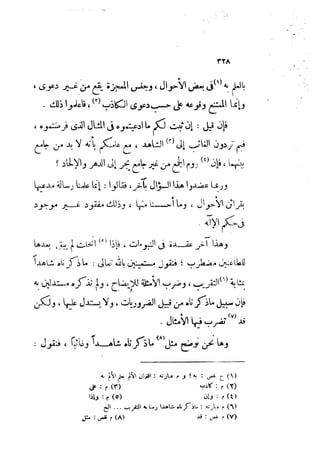 ٣٢٨
بالعلم به (١) فى بعض الأحوال ، وجنس المعجزة يقع من غير دعوى ،
وإنما الممتنع وقوعه على حسب دعوى الكاذب (٢) ، فاعلموا ذلك .
فإن قيل : إن ثبت لكم ما ادعيتموه فى المثال الذى فرضتموه ،
فبم تردون الغائب إلى (٣) الشاهد ، مع علمكم بأنه لا بد من جامع
بينهما ، فإن (٤) روم الجمع من غير جامع يجر إلى الدهر والإلحاد ؟
وربما عضدوا هذا السؤال بآخر ، فقالوا : إنما علمنا رسالة مدعيها
بقرائن الأحوال ، وما أحسسنا منها ، وذلك مفقود غير موجود
فى حكم الإله .
وهذا آخر عقدة فى النبوات ، فإذا (٥) انحلت لم يبق بعدها
للطاعنين مضطرب ؛ فنقول مستعينين بالله تعالى : ما ذكرناه شاهداً
بمثابة (٦) التقريب ، وضرب الأمثلة للإيضاح ، ولم نذكره مستدلين به
فإن سبيل ما ذكرناه من قبيل الضروريات ، ولا يستدل عليها ، ولكن
قد (٧) تضرب فيها الأمثال .
وها نحن نوضح مثل (٨) ما ذكرناه شاهداً وغائباً ، فنقول :
(٢) م : كاذب
(٣) م : على
(٤) م : وإن
(٥) م : وإذا
(٧) م نقص : قد
(٨) م نقص : مثل